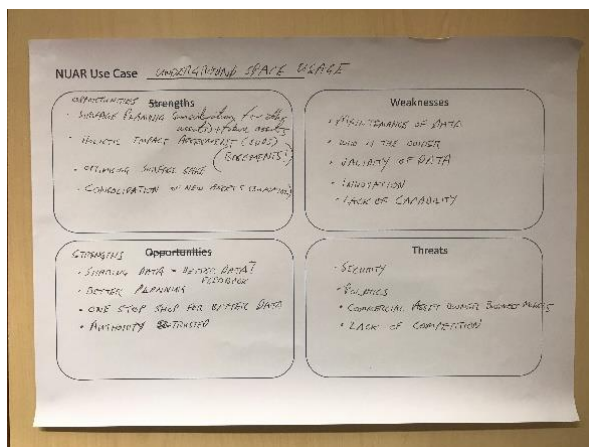 NUAR Use Case UNDERGROUND SPACE USAGE
OPPORTUNITIES Strengths
· SURFACE PLANNING (consideration for other
assets) + future assets
· HOLISTIC IMPACT ASSESSMENT (SUDS)
(BASEMENTS!)
· OPTIMISING SURFACE SPACE
· CONSOLIDATION OF NEW ASSETS
Weaknesses
· MAINTENANCE OF DATA
· WHO IS THE OWNER
· VALIDITY OF DATA
· INNOVATION
· LACK OF CAPABILITY
STRENGTHS Opportunities
· SHARING DATA = BETTER DATA?
FEEDBACK
· BETTER PLANNING
· ONE STOP SHOP FOR BETTER DATA
· AUTHORITY TRUSTED
Threats
· SECURITY
· POLITICS
· COMMERCIAL ASSET OWNERS BUSINESS MODELS
· LACK OF COMPETITION